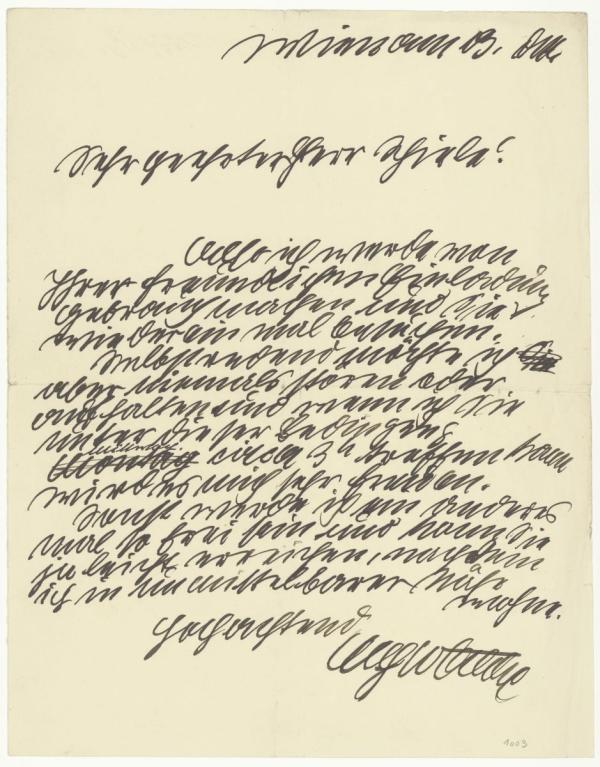 Wien am 13. Okt.
Sehr geehrter Herr Schiele!
Also ich werde von
Ihrer freundlichen Einladung
gebrauch machen und Sie
wieder ein mal besuchen.
Selbstredend möchte ich Sie
aber niemals stören oder
aufhalten und wenn ich Sie
unter dieser Bedingung
Montag circa 3h treffen kann
wird es mich sehr freuen.
Sonst werde ich ein anderes
mal so frei sein und kann Sie
ja leicht erreichen, nachdem
ich in unmittelbarer Nähe
wohne.
Hochachtend
1003